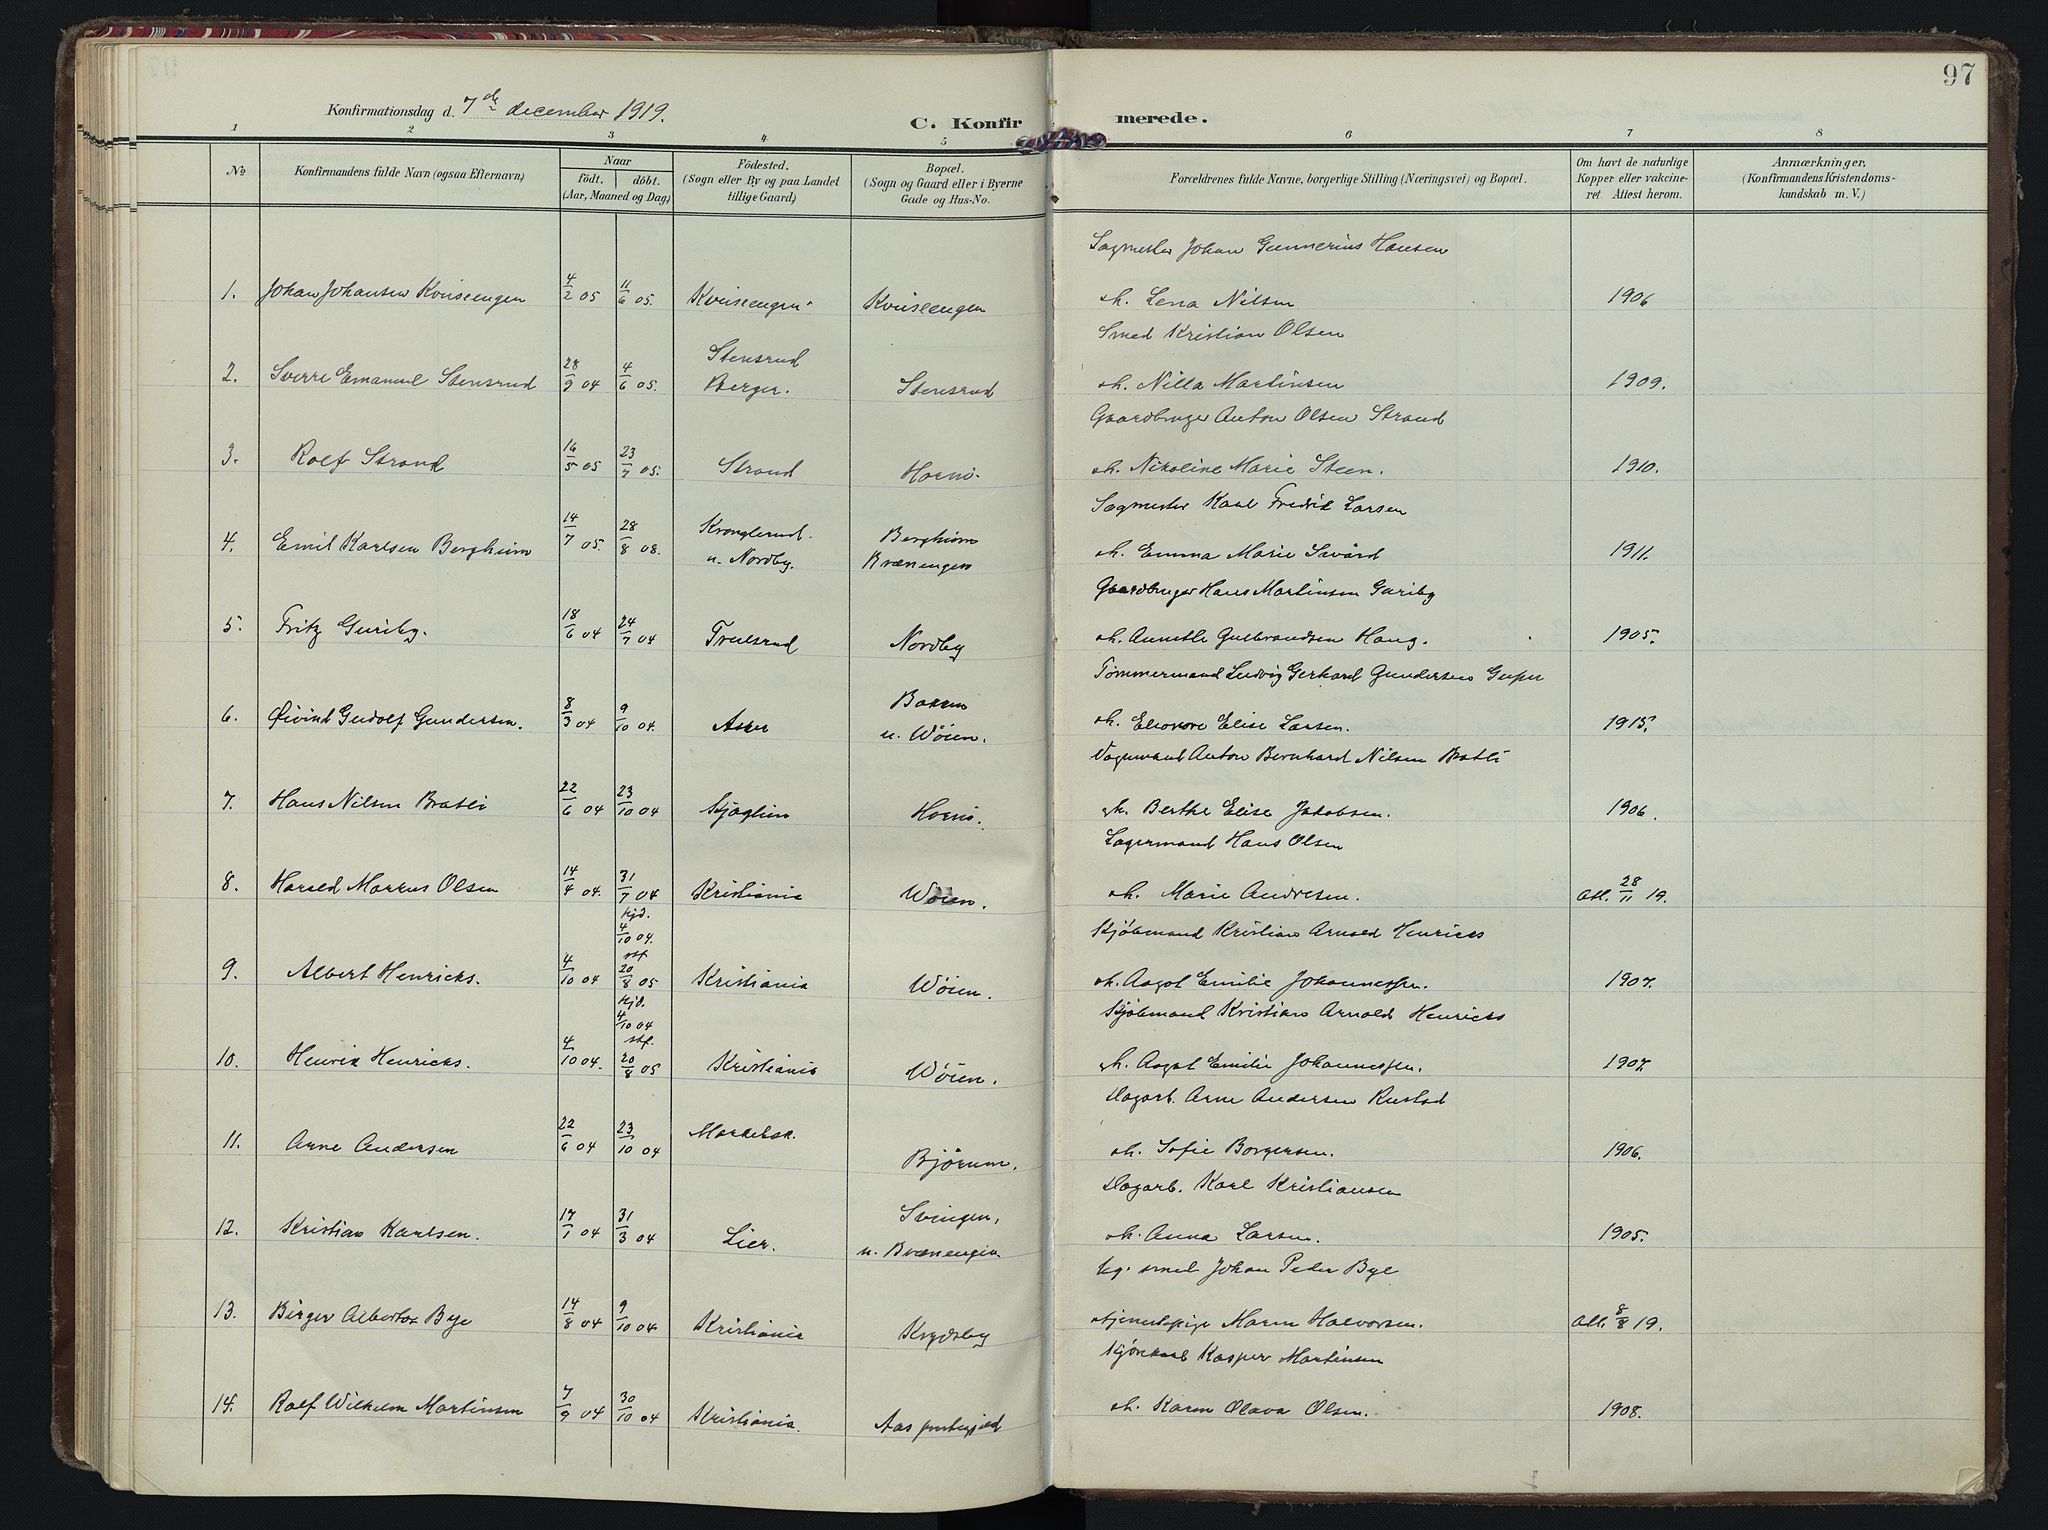 97
Konfirmationsdag d. 7de december 1919.
C. Konfirmerede.
1 2 3 4 5 6 7 8
No
Konfirmandens fulde Navn (ogsaa Efternavn)
Naar
födt. döbt.
(Aar, Maaned og Dag)
Födested.
(Sogn eller By og paa Landet
tillige Gaard)
Bopæl.
(Sogn og Gaard eller i Byerne
Gade og Hus-No.
Forældrenes fulde Navne, borgerlige Stilling (Næringsvei) og Bopæl.
Om havt de naturlige
Kopper eller vakcine-
ret. Attest herom.
Anmærkninger,
(Konfirmandens Kristendoms-
kundskab m. V.)
Sagmester Johan Gunnerius Hansen
1. Johan Johansen Kviseengen 4/2 05 11/6 05. Kviseengen Kviseengen oh. Lena Nilsen 1906
Smed Kristian Olsen
2. Sverre Emanuel Stensrud 28/9 04 4/6 05. Stensrud Berger. Stensrud oh. Nilla Martinsen 1909.
Gaardbruger Anton Olsen Strand
3. Rolf Strand 16/5 05 23/7 05. Strand Hornö. oh. Nikoline Marie Steen. 1910.
Sagmester Karl Fredrik Larsen
4. Emil Karlsen Bergheim 14/7 05. 28/8 08. Kronglerud. u. Nordby. Bergheim Brænengen oh. Emma Marie Svärd 1911.
Gaardbruger Hans Martinsen Guriby
5. Fritz Guriby. 18/6 04 24/7 04 Trulsrud Nordby oh. Annette Gulbrandsen Haug. 1905.
Tömmermand Ludvig Gerhard Gundersen
6. Øivind Gudolf Gundersen. 8/3 04 9/10 04. Asker Bærum u. Wöien. oh. Eleonore Elise Larsen. 1915.
Vognmand Anton Bernhard Nilsen Bratli
7. Hans Nilsen Bratli 22/6 04 23/10 04 Skjæglien Hornö. oh. Berthe Elise Jakobsen. 1906.
Lagermand Hans Olsen
8. Harald Markus Olsen 14/4 04. 31/7 04 Kristiania Wöien. oh. Marie Andresen. Att. 28/11 19.
Sjöbmand Kristian Arnold Henricks
9. Albert Henricks. 4/10 04 hjd. 4/10 04. stf 20/8 05 Kristiania Wöien. oh. Aagot Emilie Johannessen. 1907.
Sjöbmand Kristian Arnold Henricks
10. Henrik Henricks. 4/10 04. hjd. 4/10 04 stf. 20/8 05 Kristiania Wöien. oh. Aagot Emilie Johannessen. 1907.
Dagarb. Arne Andersen Rustad
11. Arne Andersen 22/6 04 23/10 04 Björum. oh. Sofie Borgersen. 1906.
Dagarb. Karl Kristiansen
12. Kristian Karlsen. 17/1 04 31/3 04 Lier. Svingen, u. Brænengen oh. Anna Larsen. 1905.
Ug. smed Johan Peder Bye
13. Birger Albertos Bye 14/8 04 9/10 04 Kristiania Krydsby og tjenestepige Maren Halvorsen. Att. 8/8 19.
Kasper Martinsen
14. Rolf Wilhelm Martinsen 7/9 04 30/10 04 Kristiania. Aas prestegjeld oh. Karen Olava Olsen. 1908.